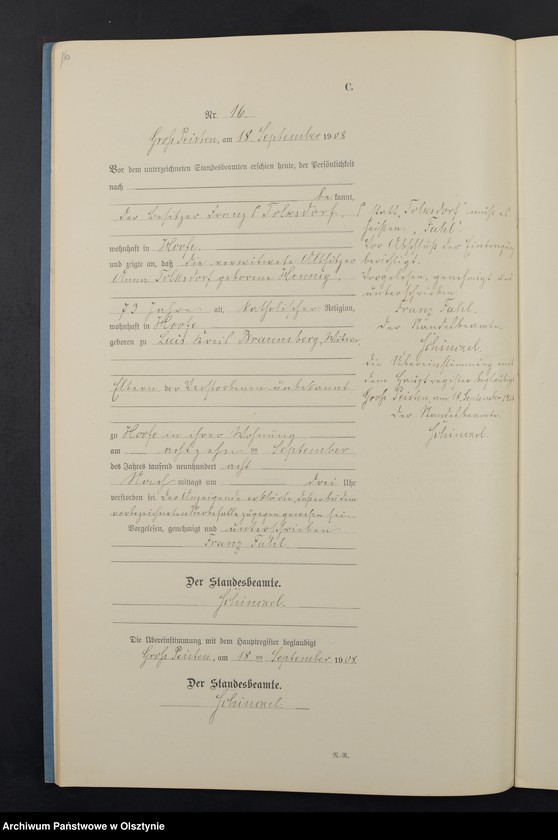 16
C.
Nr. 16.
Groß Peisten, am 18 September 1908
Vor dem unterzeichneten Standesbeamten erschien heute, der Persönlichkeit
nach
be kannt,
der Besitzer Franz Tolksdorf,
wohnhaft in Hoofe
und zeigte an, daß die verwitwete Altsitzer
Anna Tolksdorf geborene Hennig,
73 Jahre alt, katholischer Religion,
wohnhaft in Hoofe
geboren zu Kreis Braunsberg,
Eltern der Verstorbenen unbekannt
zu Hoofe in ihrer Wohnung
am achtzehn ten September
des Jahres tausend neunhundert acht
Nach mittags um drei Uhr
verstorben sei. Der Anzeigende erklärte, daß er bei dem
vorbezeichneten Sterbefalle zugegen gewesen sei.
Vorgelesen, genehmigt und unterschrieben
Franz Fahl
Der Standesbeamte.
Schimmel.
Die Übereinstimmung mit dem Hauptregister beglaubigt
Groß Peisten, am 18 ten September 1908
Der Standesbeamte.
Schimmel.
N.-R.
statt "Tolksdorf" muß es
heißen: "Fahl"
Vor Abschluß der Eintragung
berichtigt.
Vorgelesen, genehmigt und
unterschrieben
Franz Fahl.
Der Standesbeamte.
Schimmel.
Die Übereinstimmung mit
dem Hauptregister beglaubigt
Groß Peisten, am 18. September 1908
Der Standesbeamte.
Schimmel.
Archiwum Państwowe w Olsztynie